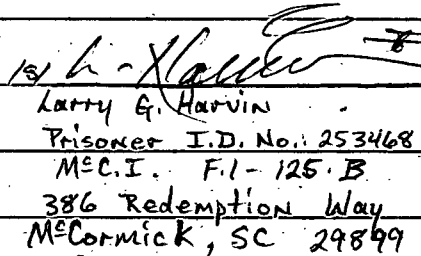 /s/
Larry G. Harvin
Prisoner I.D. No.: 253468
McC.I. F.1-125.B
386 Redemption Way
McCormick, SC 29899